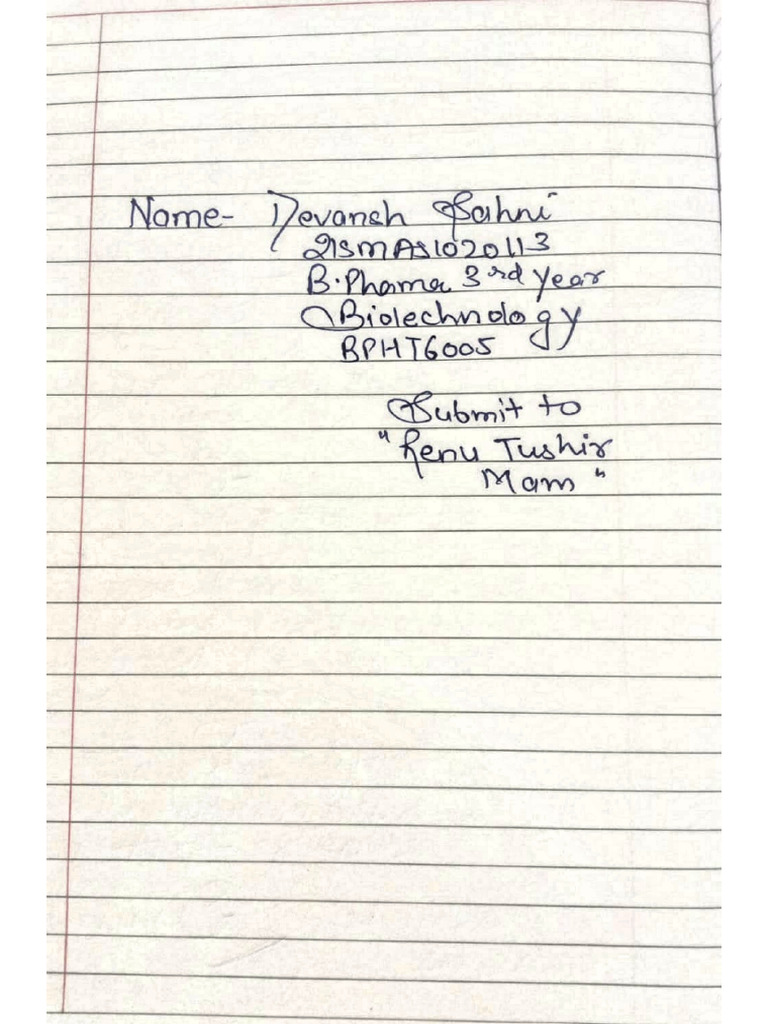 Name- Devansh Sahni
21SMAS1020113
B.Phama 3rd year
Biotechnology
BPHT6005
Submit to
"Renu Tushir
Mam"